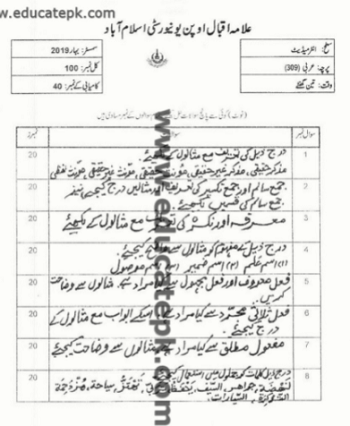 www.educatepk.com
علامہ اقبال اوپن یونیورسٹی اسلام آباد
سطح: انٹرمیڈیٹ
سمسٹر: بہار 2019
پرچہ: عربی (309)
کل نمبر: 100
وقت: تین گھنٹے
کامیابی کے نمبر: 40
سوال نمبر
نمبرز
1 درج ذیل کی تعریف مع مثالوں کے لکھیئے 20
مذکر حقیقی، مذکر غیر حقیقی، مؤنث حقیقی، مؤنث غیر حقیقی، مؤنث لفظی
2 جمع سالم اور جمع تکسیر کی تعریف اور مثالیں درج کیجیے نیز 20
جمع سالم کی قسمیں لکھیئے۔
3 معرفہ اور نکرہ کی تعریف مع مثالوں کے لکھیئے 20
4 درج ذیل کے مفہوم کو مثالوں سے واضح کیجیئے 20
(۱) اسم علم (۲) اسم ضمیر (۳) اسم موصول
5 فعل معروف اور فعل مجہول سے کیا مراد ہے، مثالوں سے وضاحت 20
کریں۔
6 فعل ثلاثی مجرد سے کیا مراد ہے؟ اسکے ابواب مع مثالوں کے 20
درج کیجیئے۔
7 مفعول مطلق سے کیا مراد ہے مثالوں سے وضاحت کیجیئے 20
8 درج ذیل کلمات کو جملوں میں استعمال کیجیئے 20
جواهر، السيف، سياحة
السيارات
www.educatepk.com